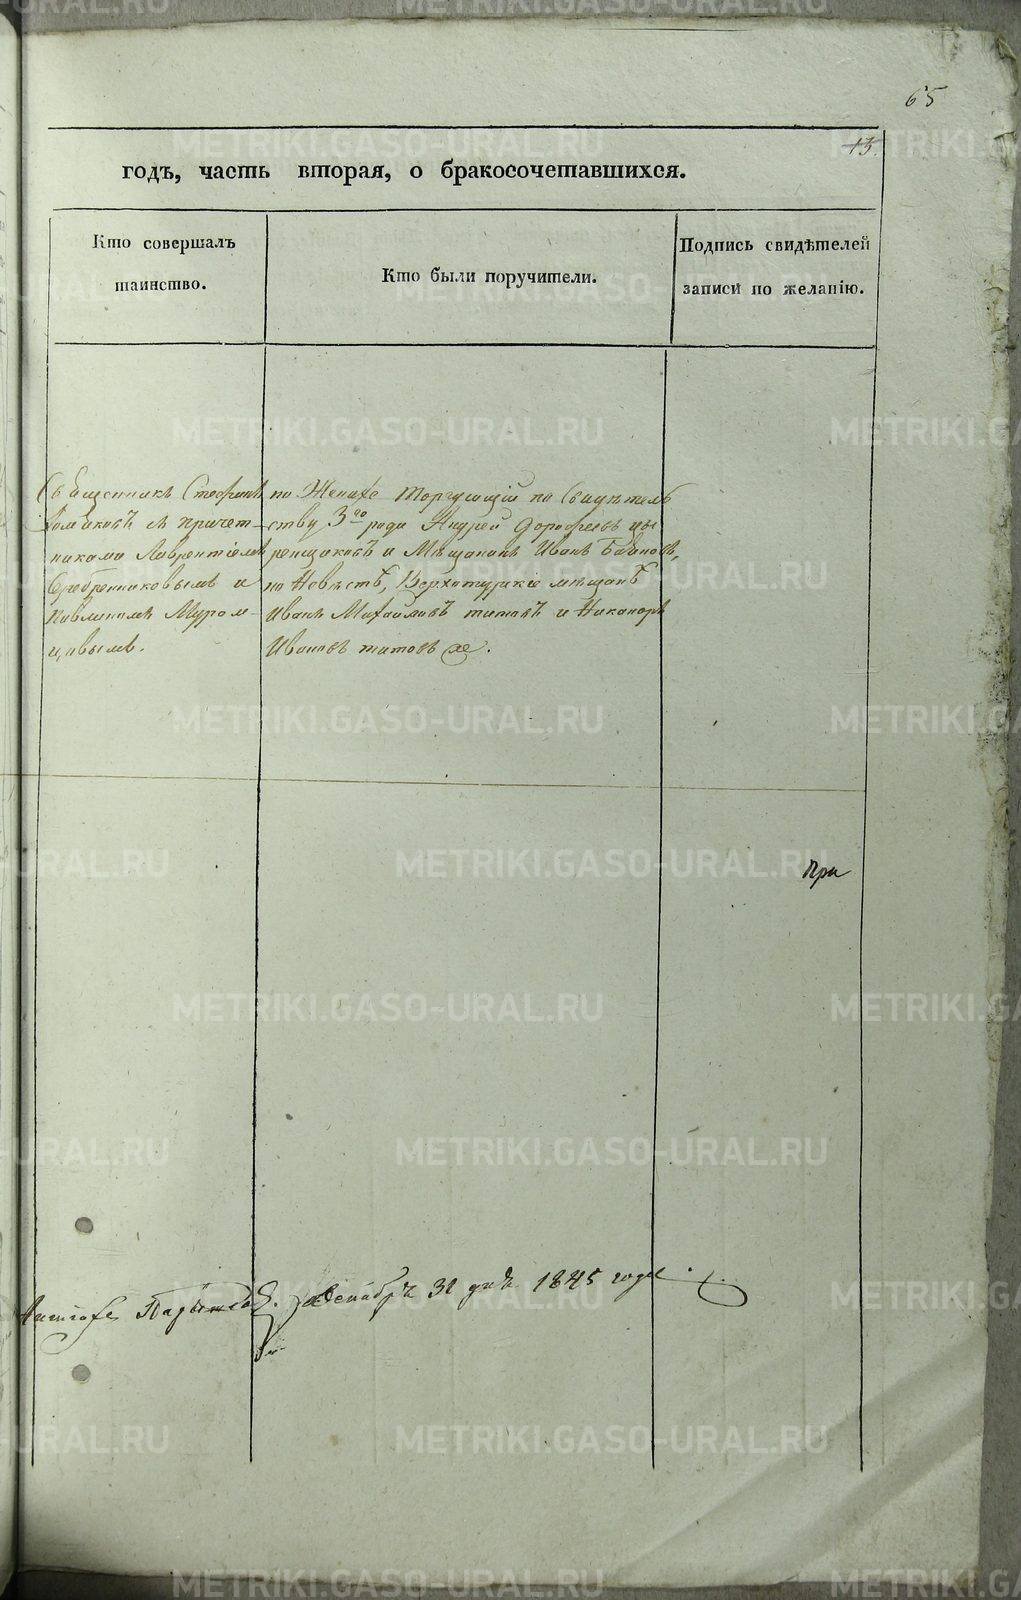 65
13.
годъ, часть вторая, о бракосочетавшихся.
Кто совершалъ
таинство.
Кто были поручители.
Подпись свидѣтелей
записи по желанію.
Священникъ Стефанъ
съ причет-
никами Лаврентіемъ
Серебренниковымъ и
Муром-
цовымъ.
по Женихе Торгующій по Свидѣтель
ству 3го рода Андрей Дорофеевъ
и Мѣщанинъ Иванъ
по Невѣстѣ, Верхотурскіе мѣщанѣ
Иванъ Михайловъ титовъ и Никаноръ
Ивановъ титовъ
При
Декабрѧ 31 днѧ 1845 года.
METRIKI.GASO-URAL.RU